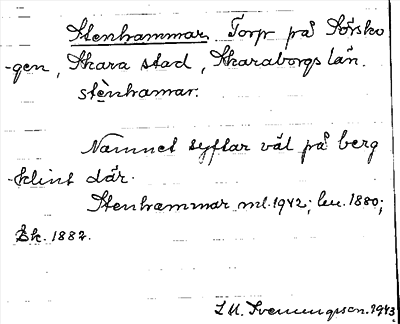 Stenhammar. Torp på Sörsko
-gen, Skara stad, Skaraborgs län.
stènhamar.
Namnet syftar väl på berg
-klint där.
Stenhammar ml. 1942; leu. 1880;
Sk. 1882.
S.U. Svenungsson. 1943.